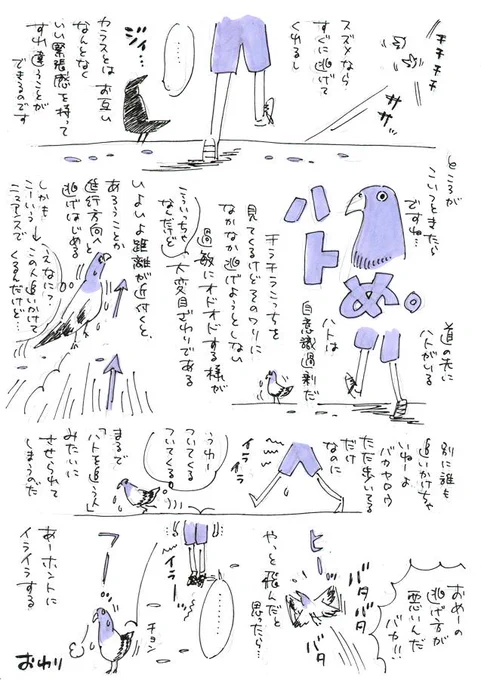 チチチチ
ササッ
スズメなら
すぐに逃げて
くれるし
……
ジィ…
カラスとは お互い
なんとなく
いい緊張感を持って
すれ違うことが
できるのです
ところが
こいつときたら
ですね…
ハトめ。
道の先に
ハトがいる
ハトは
自意識過剰だ
チラチラこっちを
見てくるけどそのワリに
なかなか逃げようとしない
過敏にオドオドする様が
こういっちゃ
なんだけど
大変目ざわりである
いよいよ距離が近付くと、
あろうことか
進行方向へと
逃げはじめる
えなに?
この人追いかけて
くるんだけど…
しかも
こーいう
ニュアンスで
別に誰も
追いかけちゃ
いねーよ
バカヤロウ
ただ歩いてる
だけ
なのに
イライラ
うわー
ついてくる
ついてくる
まるで
「ハトを追う人」
みたいに
させられて
しまうのだ
おめーの
逃げ方が
悪いんだ
バカ!!
ヒー
バタ
バタ
バタ
やっと飛んだと
思ったら…
イラ〜
……
チョン
フー
あーホントに
イライラする
おわり